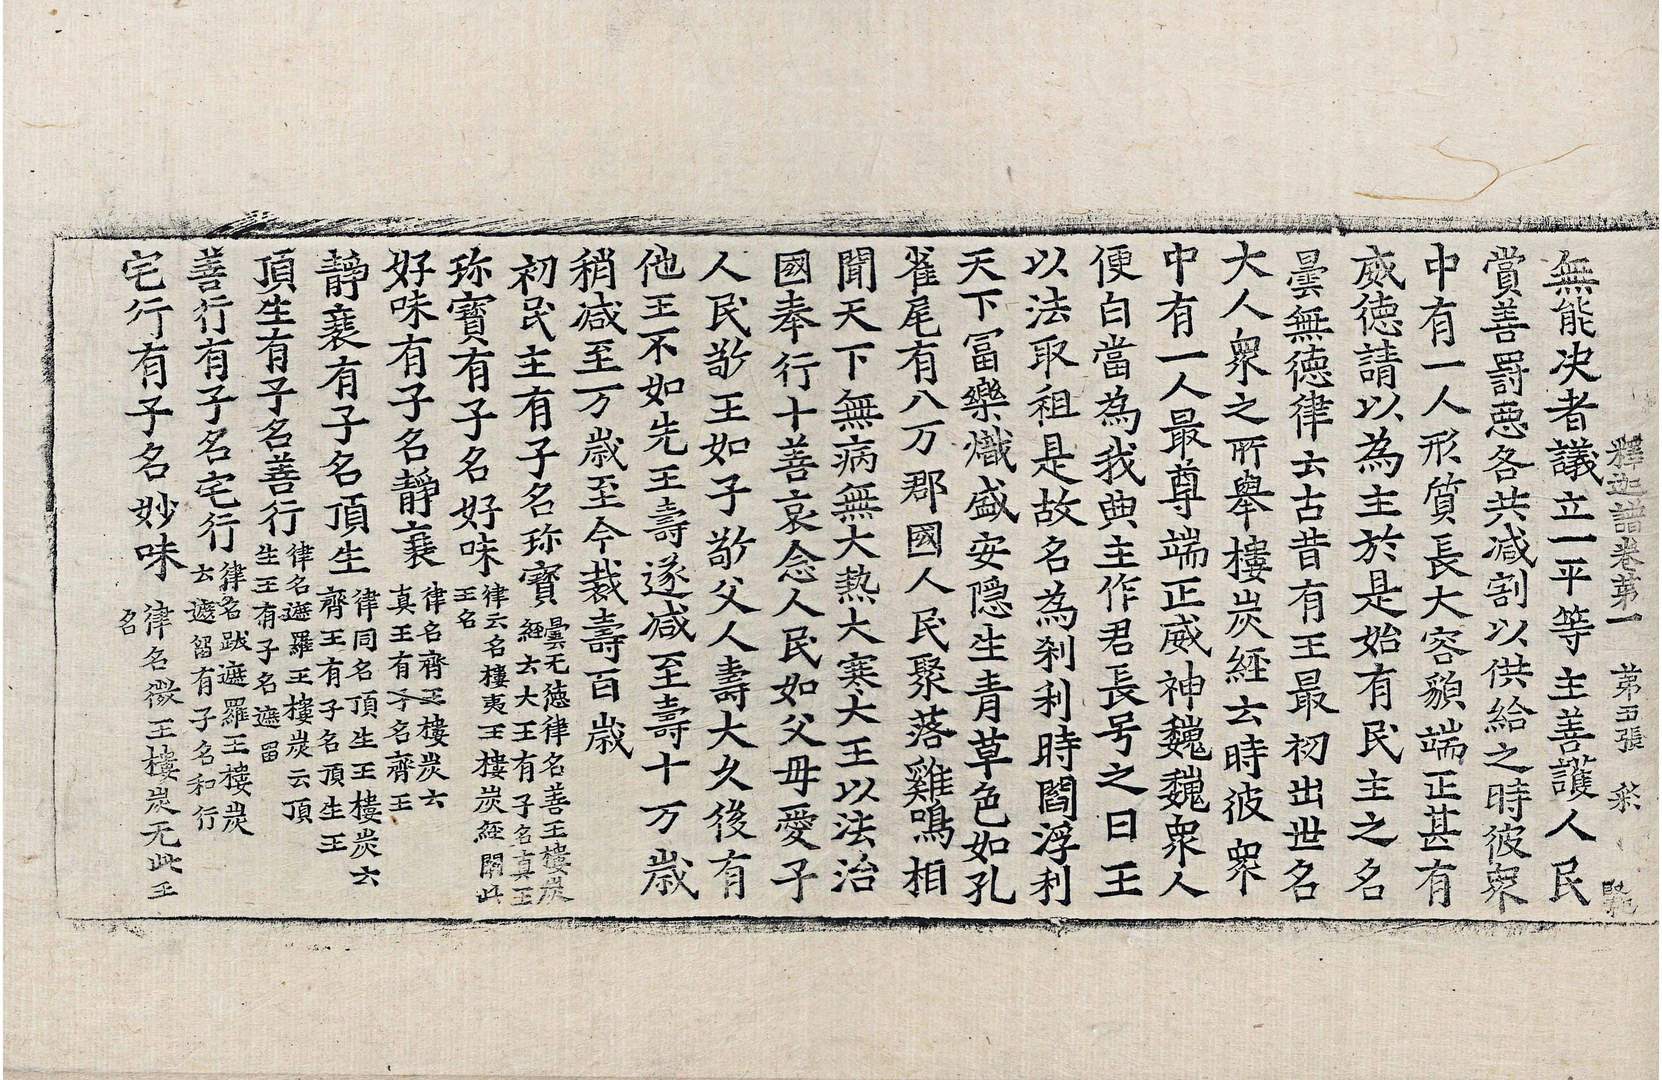 釋迦譜卷第一 第五張
無能決者議立一平等主善護人民
賞善罰惡各共減割以供給之時彼衆
中有一人形質長大容貌端正甚有
威德請以為主於是始有民主之名
曇無德律云古昔有王最初出世名
大人衆之所舉樓炭經云時彼衆
中有一人最尊端正威神巍巍衆人
便白當為我典主作君長号之曰王
以法取租是故名為刹利時閻浮利
天下富樂熾盛安隱生青草色如孔
雀尾有八万郡國人民聚落雞鳴相
聞天下無病無大熱大寒大王以法治
國奉行十善哀念人民如父母愛子
人民敬王如子敬父人壽大久後有
他王不如先王壽遂減至壽十万歲
稍減至万歲至今裁壽百歲
初民主有子名珎寶曇无德律名善王樓炭
經云大王有子名真王
珎寶有子名好味律云名樓夷王樓炭經闕此
王名
好味有子名靜齋律名齊王樓炭云
真王有子名齊王
靜齋有子名頂生律同名頂生王樓炭云
齊王有子名頂生王
頂生有子名善行律名遮羅王樓炭云頂
生王有子名遮留
善行有子名宅行律名跋遮羅王樓炭
云遮留有子名和行
宅行有子名妙味律名微王樓炭无此王
名